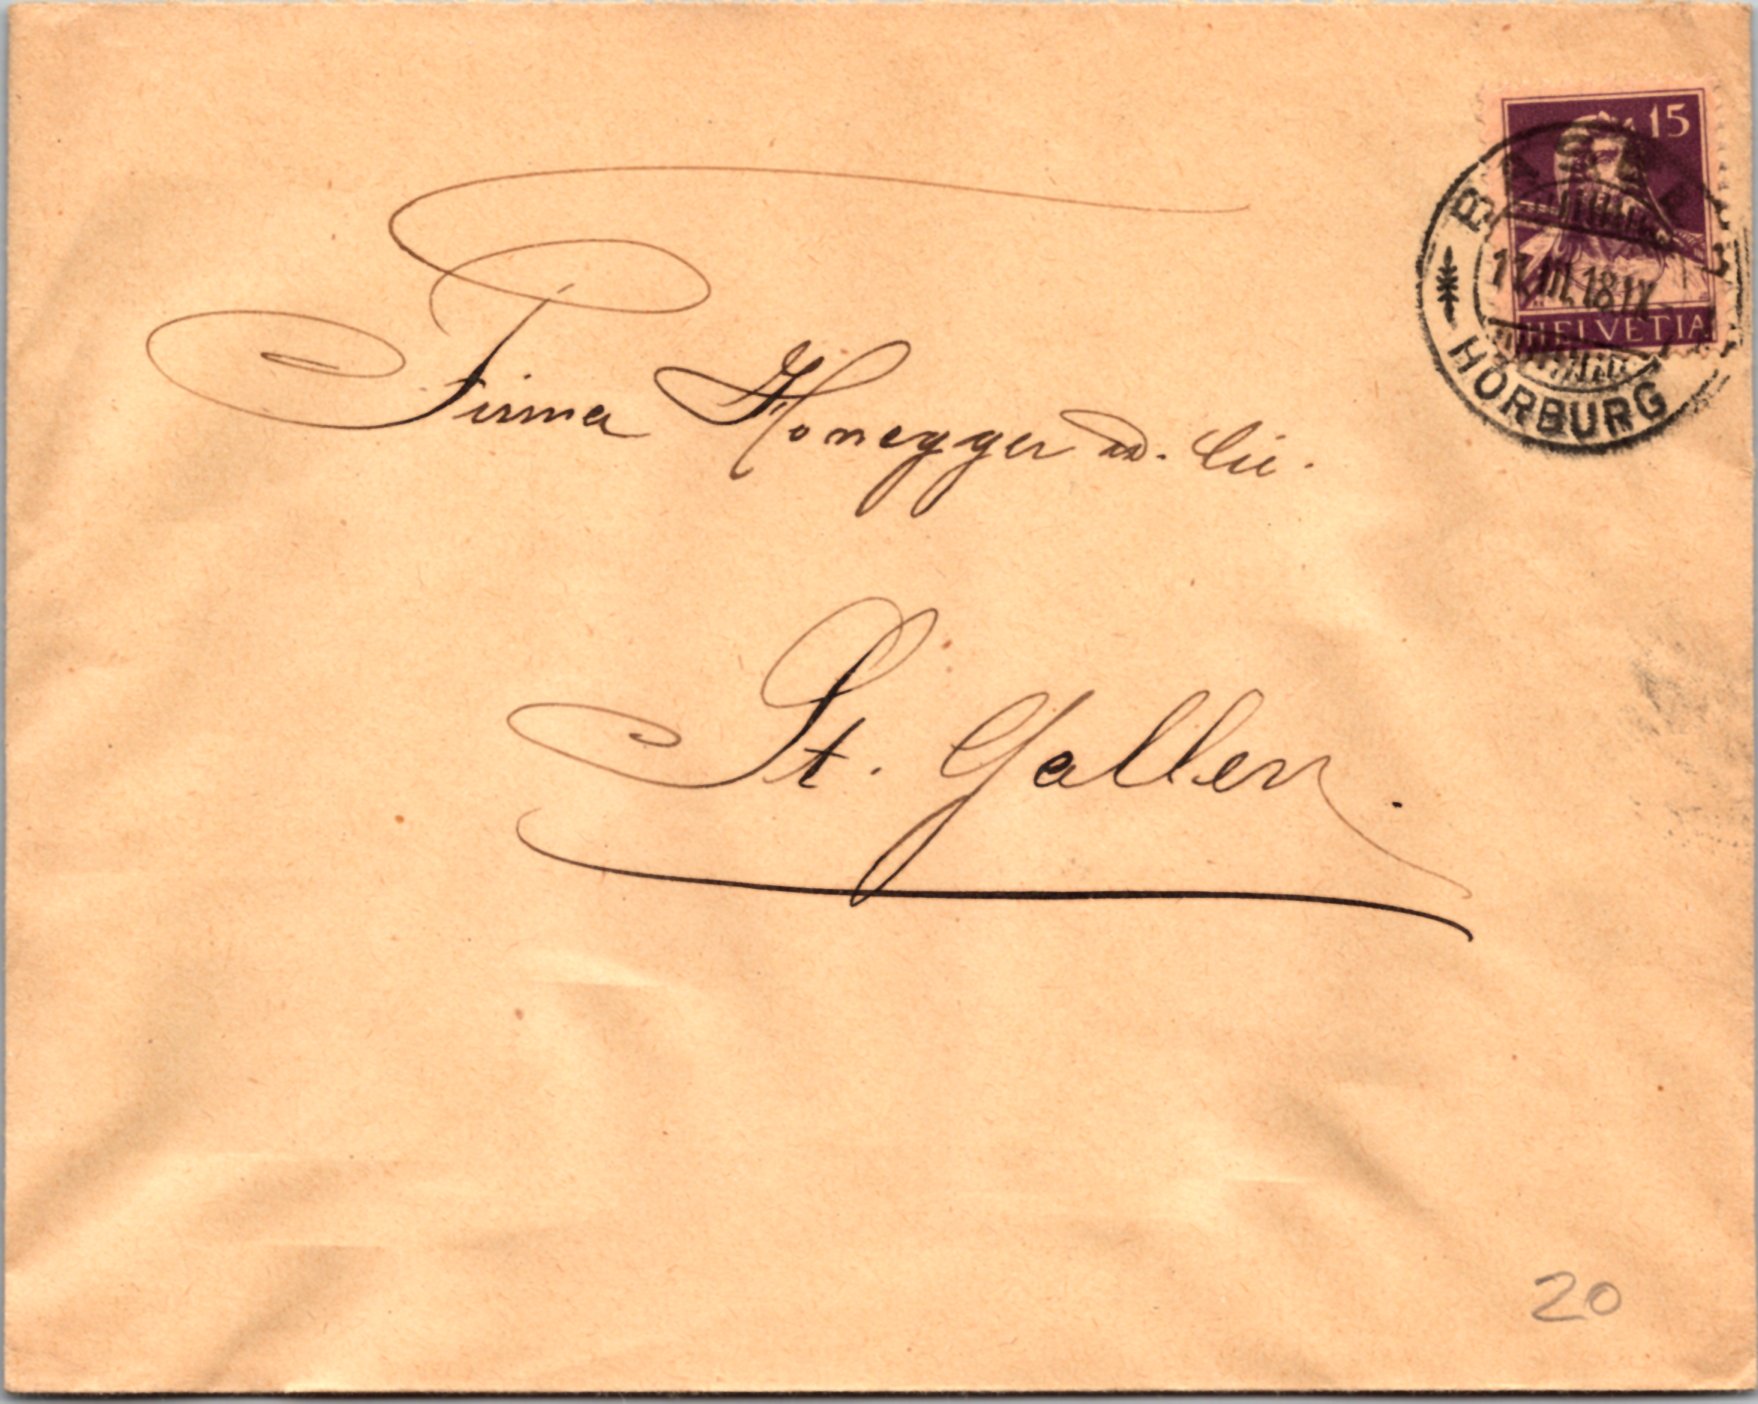 15
BASEL
17.III.18.IX
HELVETIA
HORBURG
Firma Honegger Cie.
St. Gallen.
20